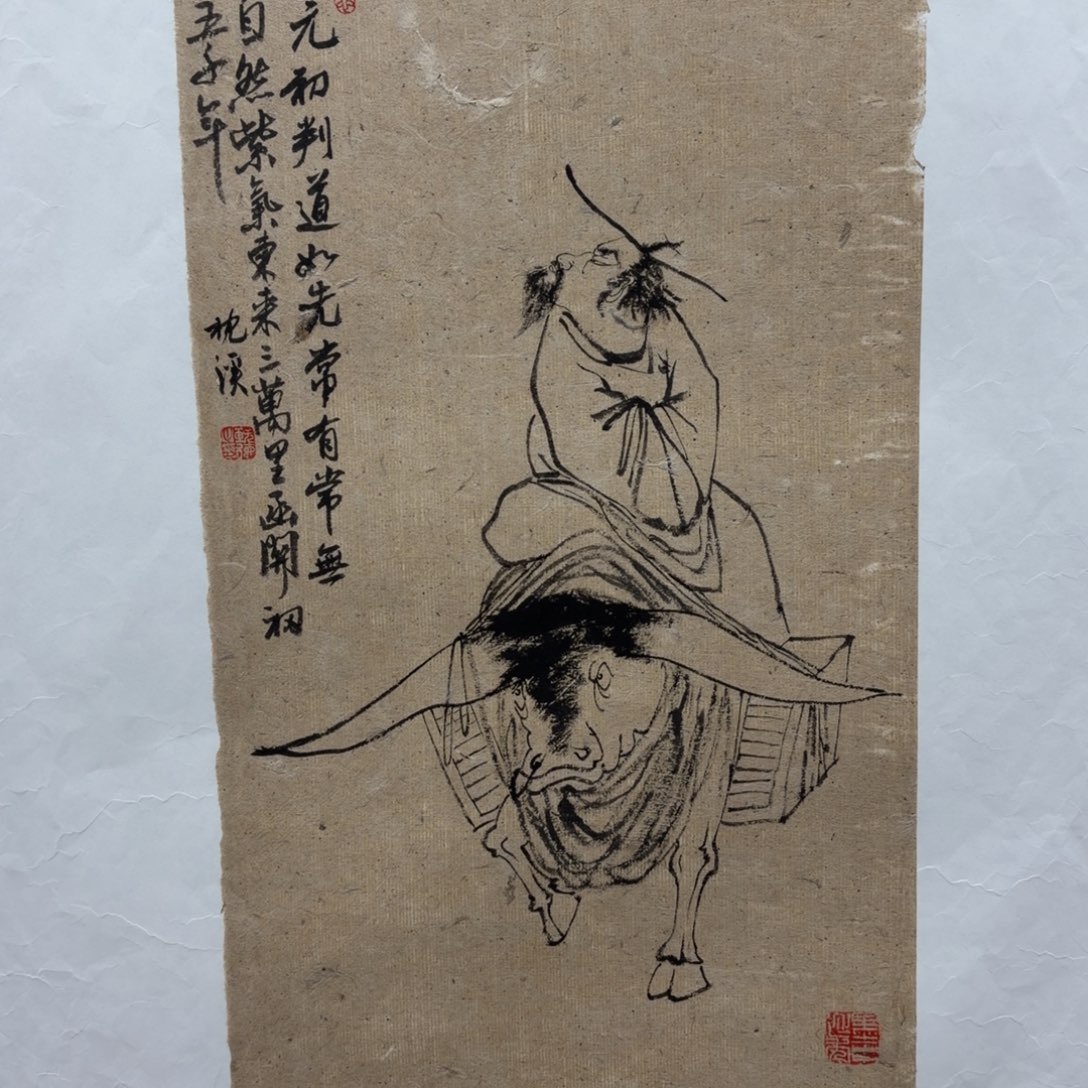 元初判道如先常有常無
自然紫氣東来三萬里函関初
五千年
枕溪